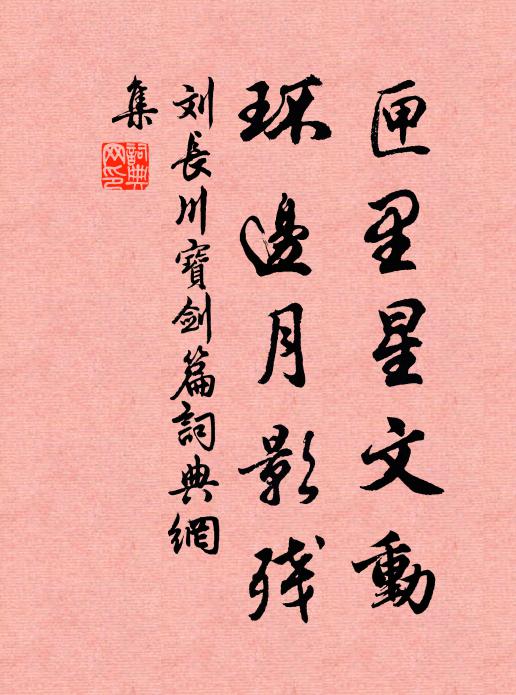 匣里星文動
环邊月影残
刘長川寶劍篇詞典網
集
詞典網印